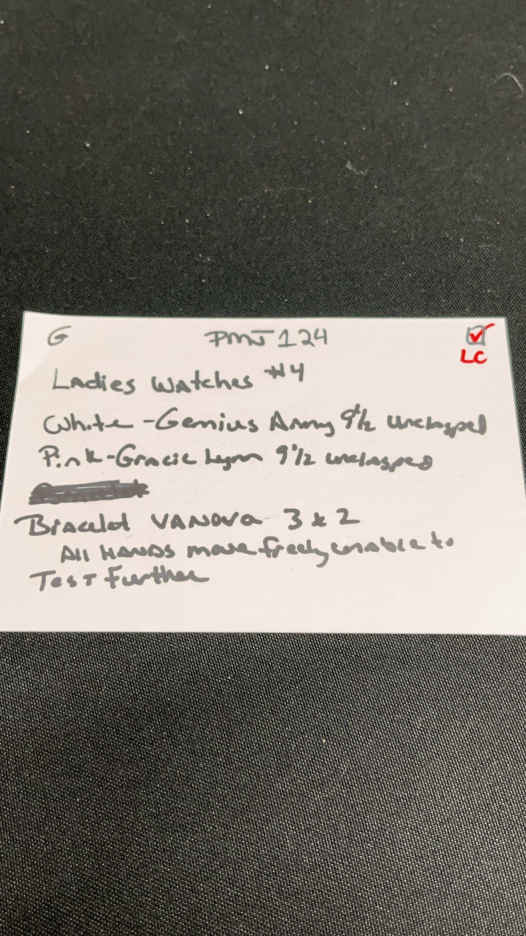 G PMJ 124
LC
Ladies Watches #4
White - Genius Army 9 1/2 unclasped
Pink - Gracie Lynn 9 1/2 unclasped
Bracelet VANOVA 3 x 2
All HANDS move freely unable to
Test Further